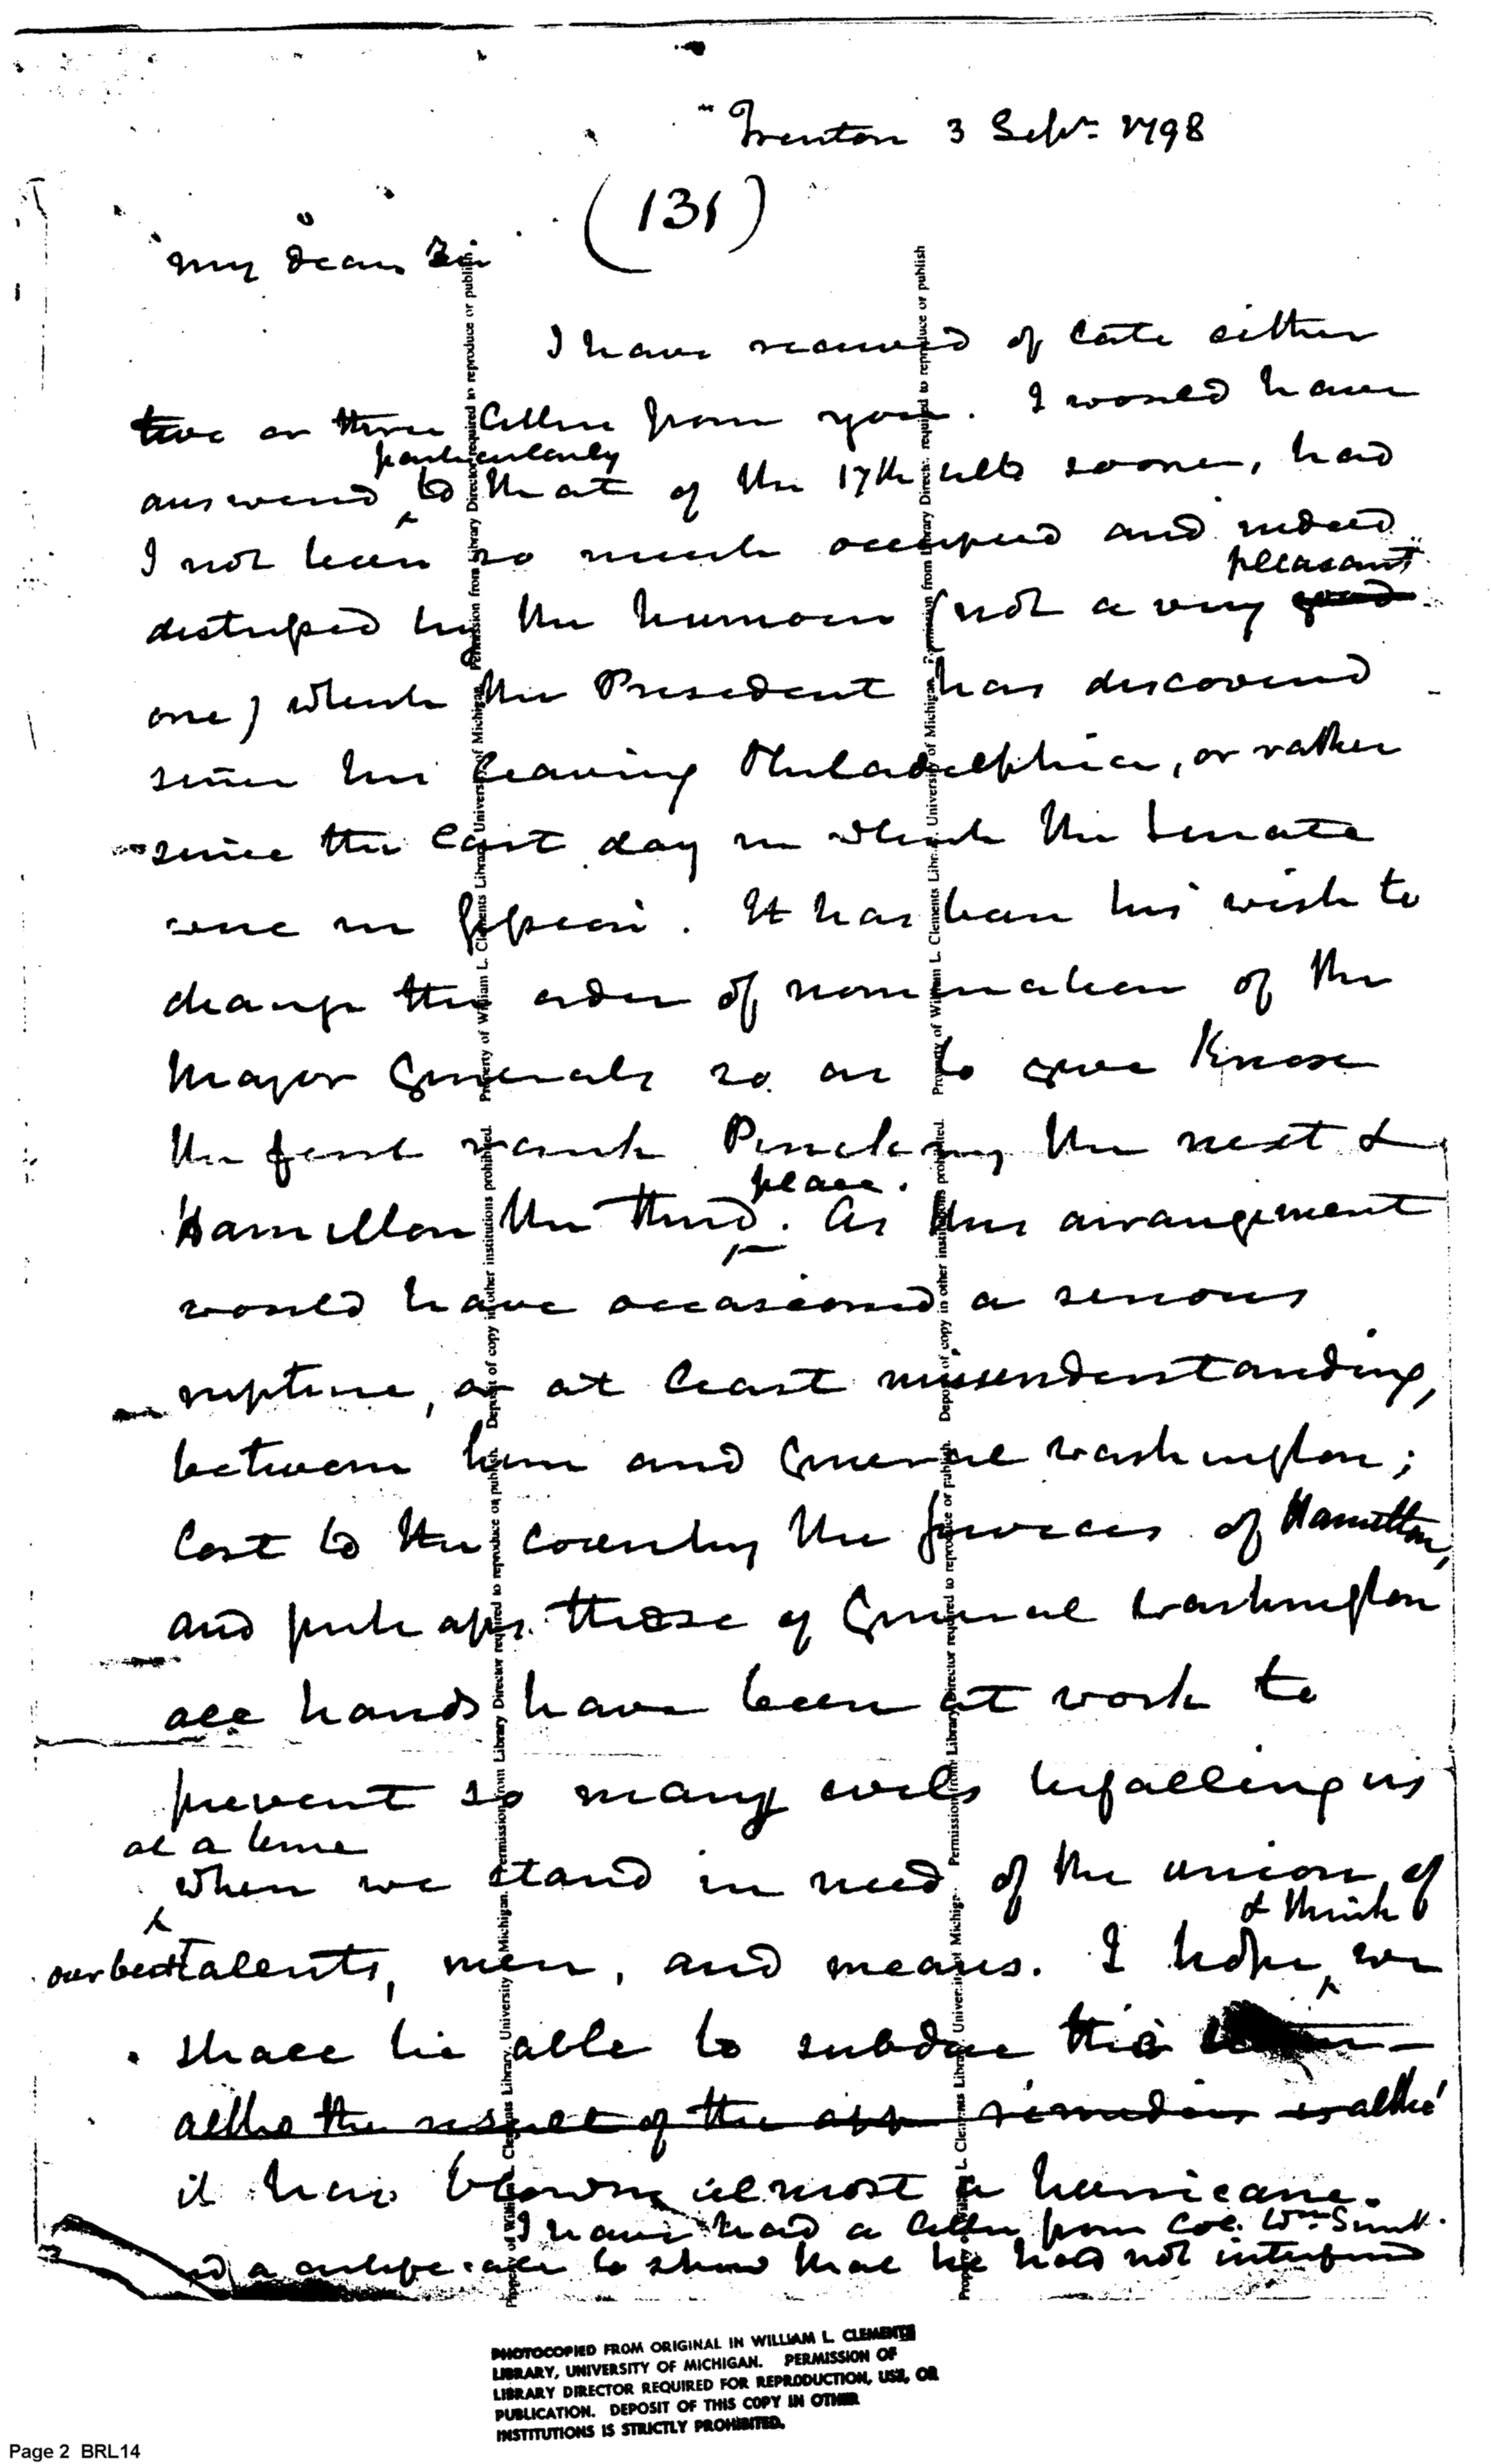 Trenton 3 Sepr. 1798
(131)
My dear Sir
I have received of late either
two or three letters from you. I would have
particularly
answered to that of the 17th ulto sooner, had
I not been so much occupied and indeed
pleasant
distressed by the humour (not a very good
one) which the President has discovered
since his leaving Philadelphia, or rather
since the last day in which the Senate
were in session. It has been his wish to
change the order of nomination of the
Major Generals so as to give Knox
the first rank Pinckney the next &
place.
Hamilton the third. As this arrangement
would have occasioned a serious
rupture, or at least misunderstanding,
between him and General Washington;
lost to the country the services of Hamilton,
and perhaps those of General Washington
all hands have been at work to
prevent so many evils befalling us
at a time
when we stand in need of the union of
& think
our best talents, men, and means. I hope we
shall be able to subdue this
altho the result of the app remedies is altho'
it has blown almost a hurricane.
I have had a letter from Col. Wm. Smith
to show that he had not interfered
PHOTOCOPIED FROM ORIGINAL IN WILLIAM L. CLEMENTS
LIBRARY, UNIVERSITY OF MICHIGAN. PERMISSION OF
LIBRARY DIRECTOR REQUIRED FOR REPRODUCTION, USE, OR
PUBLICATION. DEPOSIT OF THIS COPY IN OTHER
INSTITUTIONS IS STRICTLY PROHIBITED.
Page 2 BRL14
Property of William L. Clements Library, University of Michigan. Permission from Library Director required to reproduce or publish. Deposit of copy in other institutions prohibited. Property of William L. Clements Library, University of Michigan. Permission from Library Director required to reproduce or publish
Property of William L. Clements Library, University of Michigan. Permission from Library Director required to reproduce or publish. Deposit of copy in other institutions prohibited. Property of William L. Clements Library, University of Michigan. Permission from Library Director required to reproduce or publish